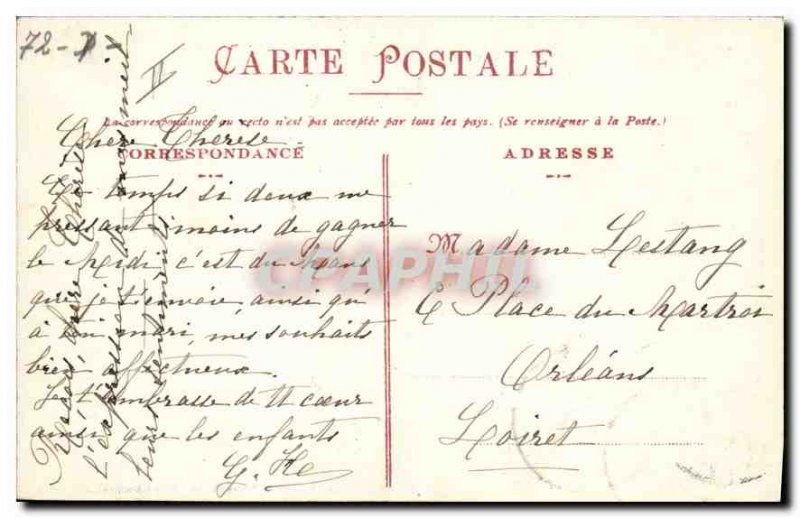 72-
II
CARTE POSTALE
La correspondance au recto n'est pas acceptée par tous les pays. (Se renseigner à la Poste.)
CORRESPONDANCE
ADRESSE
Chère Thérèse.
Le temps si doux me
pressant moins de gagner
le Midi, c'est du Mans
que je t'envoie, ainsi qu'
à ton mari, mes souhaits
bien affectueux.
Je t'embrasse de tt coeur
ainsi que les enfants
G.
chère Thérèse
l'expression de
leurs sentiments
Madame Lestang
6 Place du Martroi
Orléans
Loiret
CPAPHIL